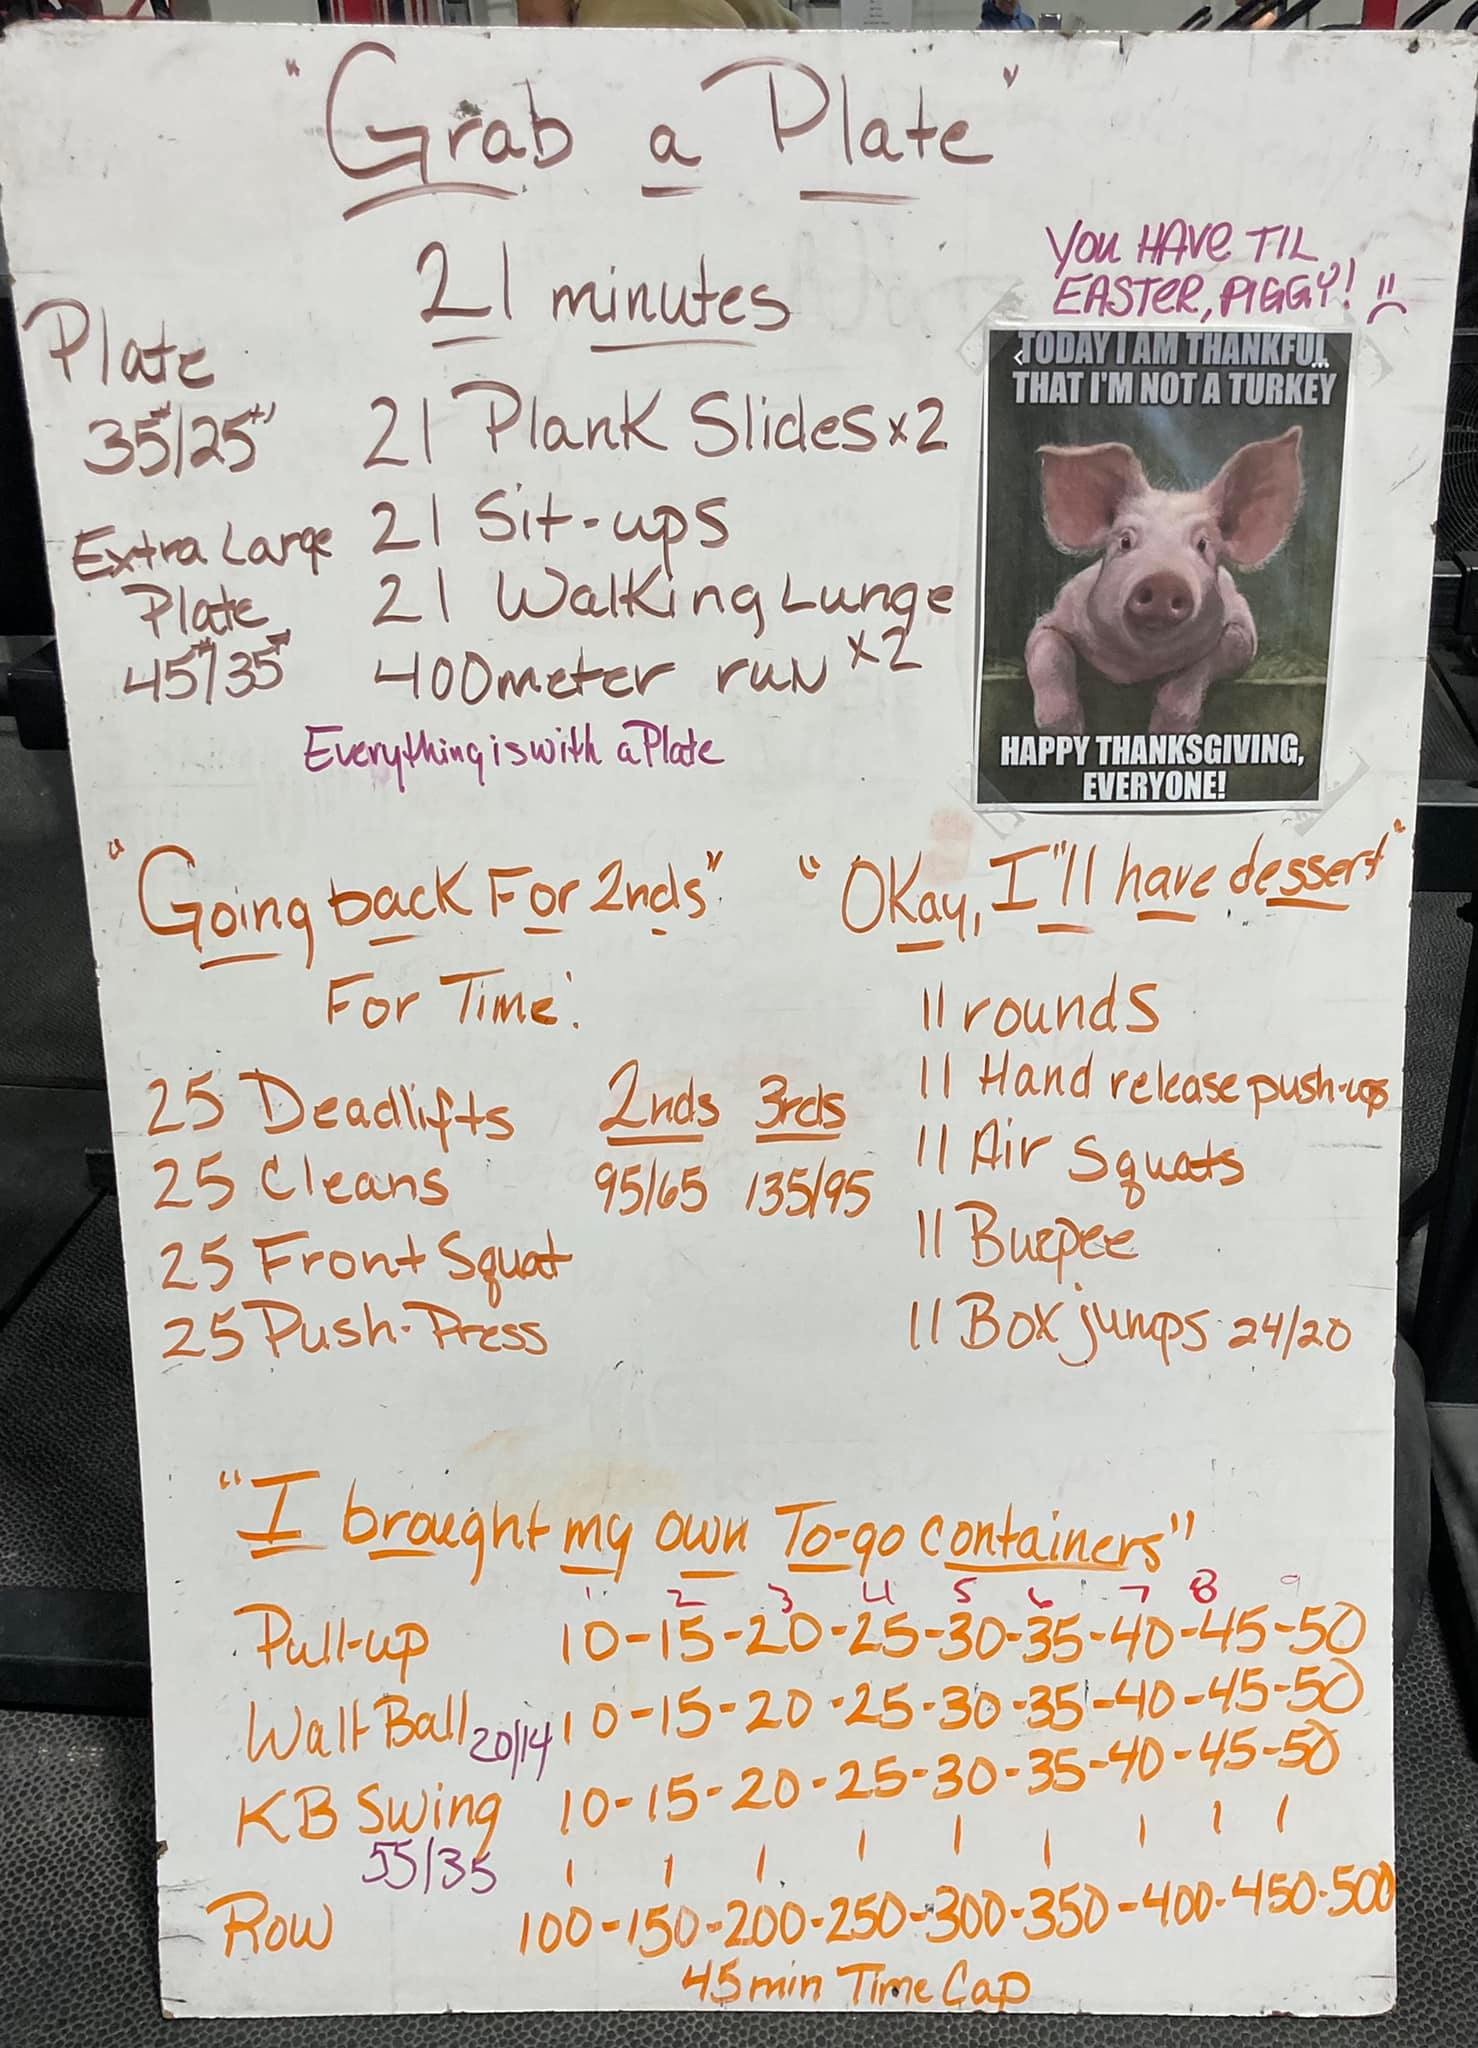 "Grab a Plate"
21 minutes
YOU HAVE TIL
EASTER, PIGGY!
TODAY I AM THANKFUL..
THAT I'M NOT A TURKEY
HAPPY THANKSGIVING,
EVERYONE!
Plate
35#/25#
Extra Large
Plate
45#/35#
21 Plank Slides x2
21 Sit-ups
21 Walking Lunge
x2
400meter run
Everything is with a Plate
"Going back For 2nds"
For Time:
25 Deadlifts
25 Cleans
25 Front Squat
25 Push-Press
2nds 3rds
95/65 135/95
"Okay, I"ll have dessert"
11 rounds
11 Hand release push-ups
11 Air Squats
11 Burpee
11 Box jumps 24/20
"I brought my own To-go containers"
1 2 3 4 5 6 7 8 9
Pull-up 10-15-20-25-30-35-40-45-50
Wall Ball 20/14 10-15-20-25-30-35-40-45-50
KB Swing 10-15-20-25-30-35-40-45-50
55/35
Row 100-150-200-250-300-350-400-450-500
45min Time Cap